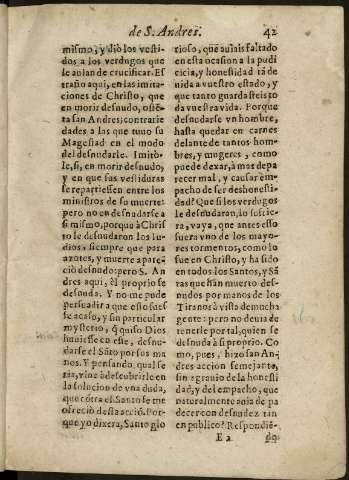 de S. Andres. 42
mismo, y diò los vesti-
dos a los verdugos que
le auian de crucificar. Es
traño aqui, en las imita-
ciones de Christo, que
en morir desnudo, ostẽ-
ta san Andres; contrarie
dades a las que tuuo su
Magestad en el modo
del desnudarle. Imitò-
le, si, en morir desnudo,
y en que sus vestiduras
se repartiessen entre los
ministros de su muerte:
pero no en desnudarse a
si mismo, porque à Chris
to le desnudaron los Iu-
dios, siempre que para
azotes, y muerte a pare-
ciò desnudo: pero S. An
dres aqui, èl proprio se
desnuda. Y no me pude
persuadir a que esto fues
se acaso, y sin particular
mysterio, q̃ quiso Dios
huuiesse en este, desnu-
darse el Sãto por sus ma
nos. Y pensando qual se
ria, vine à descubrirle en
la solucion de vna duda,
que cõtra el Santo se me
ofreciò desta acciõ. Por-
que yo dixera, Santo glo
rioso, que auiais faltado
en esta ocasion a la pudi
cicia, y honestidad tã de
uida a vuestro estado, y
que tanto guardasteis to
da vuestra vida. Porque
desnudarse vn hombre,
hasta quedar en carnes
delante de tantos hom-
bres, y mugeres, como
puede dexar, à mas de pa
recer mal, y causar em-
pacho de ser deshonesti-
dad? Que si los verdugos
le desnudaran, lo suofrie-
ra, vaya, que antes esso
fuera vno de los mayo-
res tormentos, como lo
fue en Christo, y ha sido
en todos los Santos, y Sã
tas que hãn muerto des-
nudos por manos de los
Tiranos à vista de mucha
gente: pero no deuia de
tenerle por tal, quien se
desnuda à si proprio. Co
mo, pues, hizo san An-
dres accion semejante,
sin agrauio de la honesti
dad, y del empacho, que
naturalmente auia de pa
decer con desnudez tan
en publico? Respondiẽ-
E 2 do